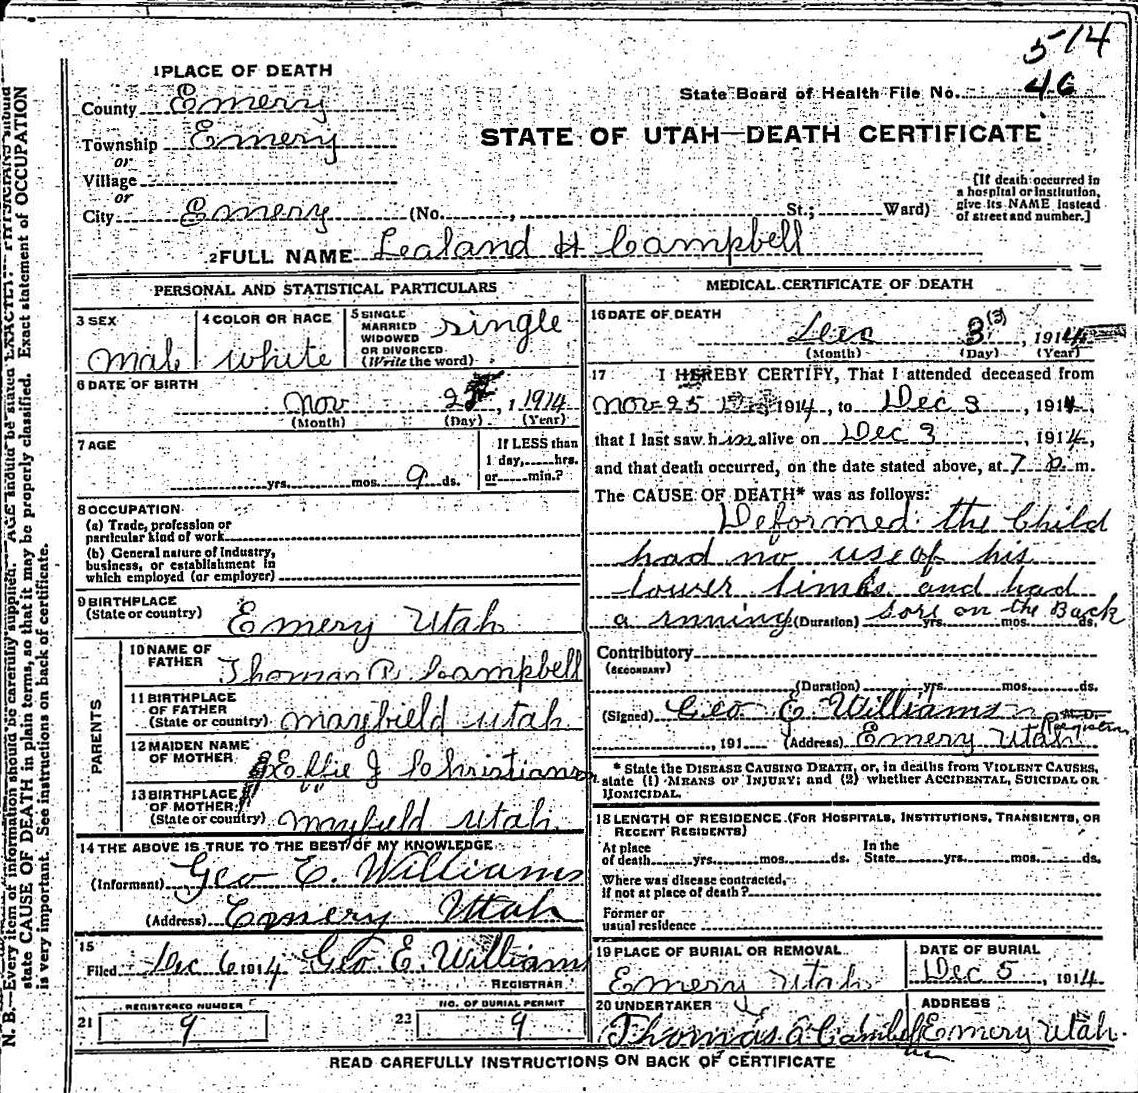 5-14
46
1 PLACE OF DEATH
County Emery
State Board of Health File No.
Township Emery
STATE OF UTAH—DEATH CERTIFICATE
or
Village
or
City Emery (No. , St.; Ward)
[If death occurred in
a hospital or institution,
give its NAME instead
of street and number.]
2 FULL NAME Lealand H Campbell
PERSONAL AND STATISTICAL PARTICULARS
3 SEX
Male
4 COLOR OR RACE
white
5 SINGLE
MARRIED
WIDOWED
OR DIVORCED
(Write the word)
single
6 DATE OF BIRTH
Nov , 1914
(Month) (Day) (Year)
7 AGE
yrs. mos. 9 ds.
If LESS than
1 day, hrs.
or min.?
8 OCCUPATION
(a) Trade, profession or
particular kind of work
(b) General nature of Industry,
business, or establishment in
which employed (or employer)
9 BIRTHPLACE
(State or country) Emery Utah
PARENTS
10 NAME OF
FATHER Thomas P. Campbell
11 BIRTHPLACE
OF FATHER
(State or country) Mayfield Utah
12 MAIDEN NAME
OF MOTHER Effie J Christianson
13 BIRTHPLACE
OF MOTHER
(State or country) Mayfield Utah
14 THE ABOVE IS TRUE TO THE BEST OF MY KNOWLEDGE
(Informant) Geo E. Williams
(Address) Emery Utah
15
Filed Dec 6 1914 Geo E. Williams
REGISTRAR
REGISTERED NUMBER
21 9
NO. OF BURIAL PERMIT
22 9
MEDICAL CERTIFICATE OF DEATH
16 DATE OF DEATH
Dec 3 (3) , 1914
(Month) (Day) (Year)
17 I HEREBY CERTIFY, That I attended deceased from
Nov 25 1914, to Dec 3, 1914,
that I last saw him alive on Dec 3, 1914,
and that death occurred, on the date stated above, at 7 p m.
The CAUSE OF DEATH* was as follows:
Deformed the Child
had no use of his
lower limbs and had
a running (Duration) sore on the Back yrs. mos. ds.
Contributory
(SECONDARY)
(Duration) yrs. mos. ds.
(Signed) Geo E Williams M.D.
Registrar
, 191 (Address) Emery Utah
* State the DISEASE CAUSING DEATH, or, in deaths from VIOLENT CAUSES,
state (1) MEANS OF INJURY; and (2) whether ACCIDENTAL, SUICIDAL OR
HOMICIDAL.
18 LENGTH OF RESIDENCE (FOR HOSPITALS, INSTITUTIONS, TRANSIENTS, OR
RECENT RESIDENTS)
At place
of death yrs. mos. ds.
In the
State yrs. mos. ds.
Where was disease contracted,
if not at place of death?
Former or
usual residence
19 PLACE OF BURIAL OR REMOVAL
Emery Utah
DATE OF BURIAL
Dec 5, 1914
20 UNDERTAKER
Thomas A Cambell
ADDRESS
Emery Utah.
READ CAREFULLY INSTRUCTIONS ON BACK OF CERTIFICATE
N. B.—Every item of information should be carefully supplied. AGE should be stated EXACTLY. PHYSICIANS should
state CAUSE OF DEATH in plain terms, so that it may be properly classified. Exact statement of OCCUPATION
is very important. See instructions on back of certificate.